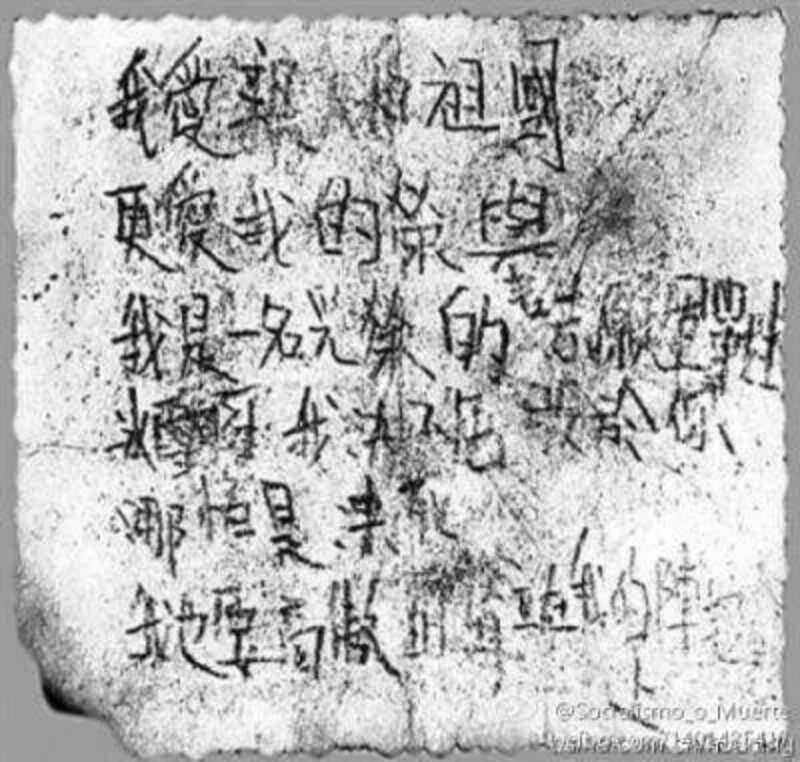 我愛親 祖國
更愛我的榮譽
我是一名光榮的志願軍戰士
冰雪啊我決不屈服於你
哪怕是凍死
我也要高傲 立在我的陣地
@Socialismo_o_Muerte